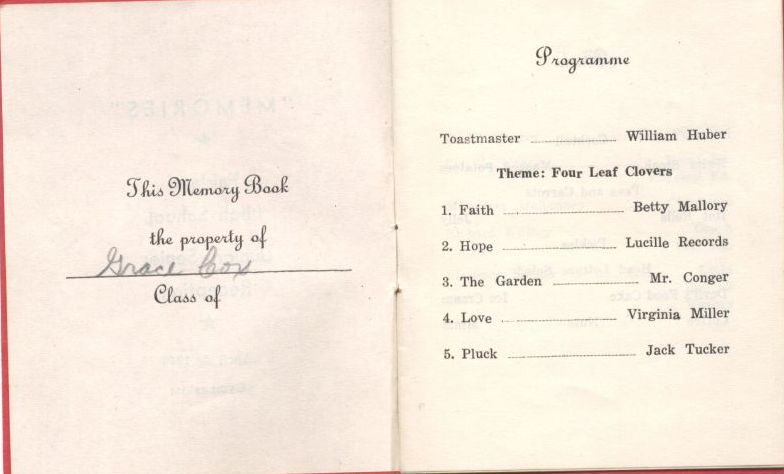 This Memory Book
the property of
Grace Cox
Class of
Programme
Toastmaster William Huber
Theme: Four Leaf Clovers
1. Faith Betty Mallory
2. Hope Lucille Records
3. The Garden Mr. Conger
4. Love Virginia Miller
5. Pluck Jack Tucker
"MEMORIES"